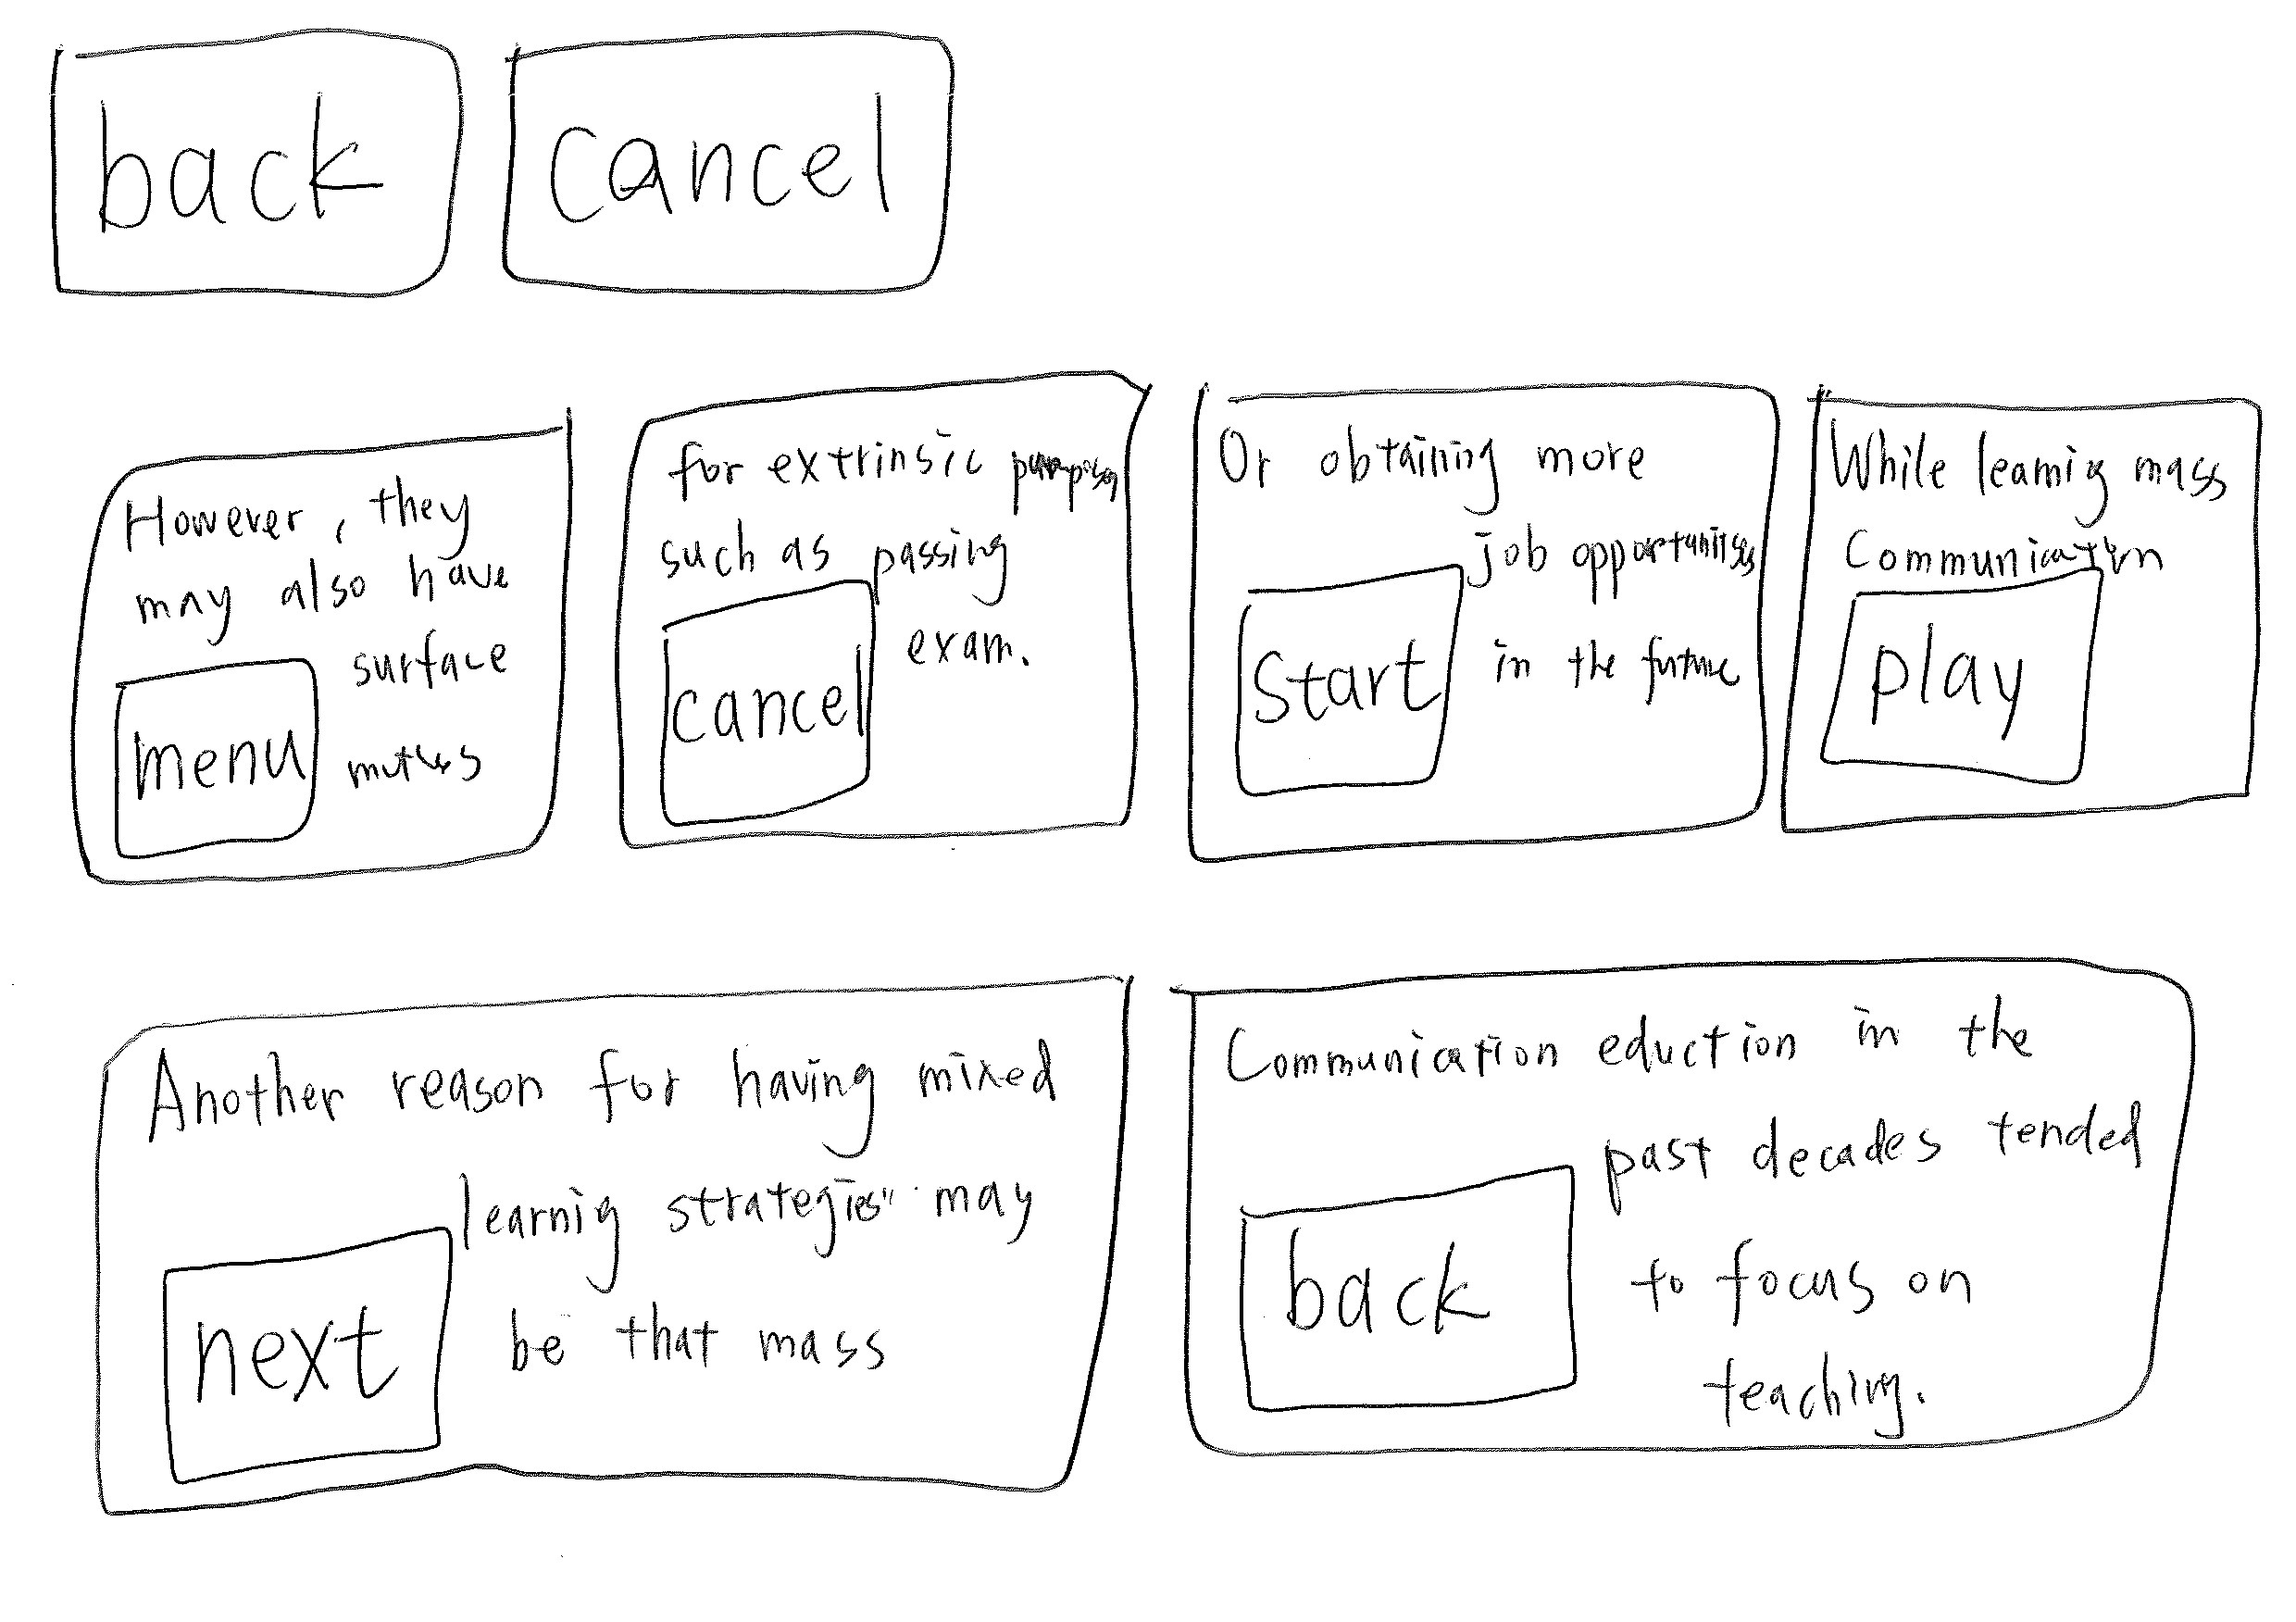 back
cancel
However, they
may also have
surface
menu
for extrinsic
such as passing
exam.
cancel
Or obtaining more
job opportunitses
in the future
start
While learnig mass
Communication
play
Another reason for having mixed
learnig strategies" may
be that mass
next
Communication eduction in the
past decades tended
to focus on
teaching.
back